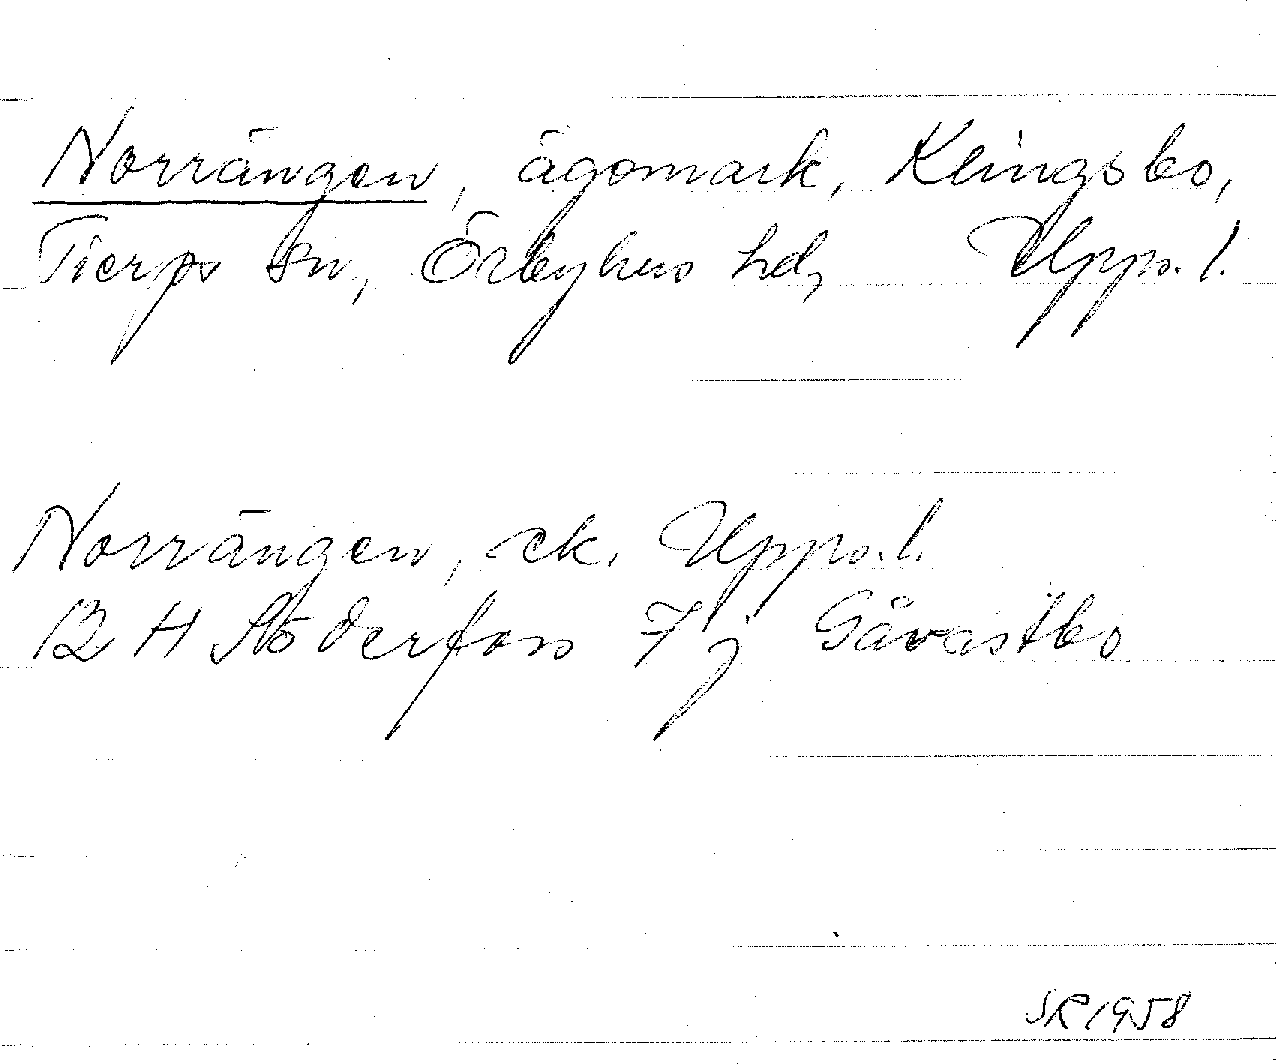 Norrängen, ägomark, Klingsbo,
Tierps sn, Örbyhus hd, Upps. l.
Norrängen, ek. Upps. l.
12 H Söderfors 7 j Gåvastbo
SR 1958